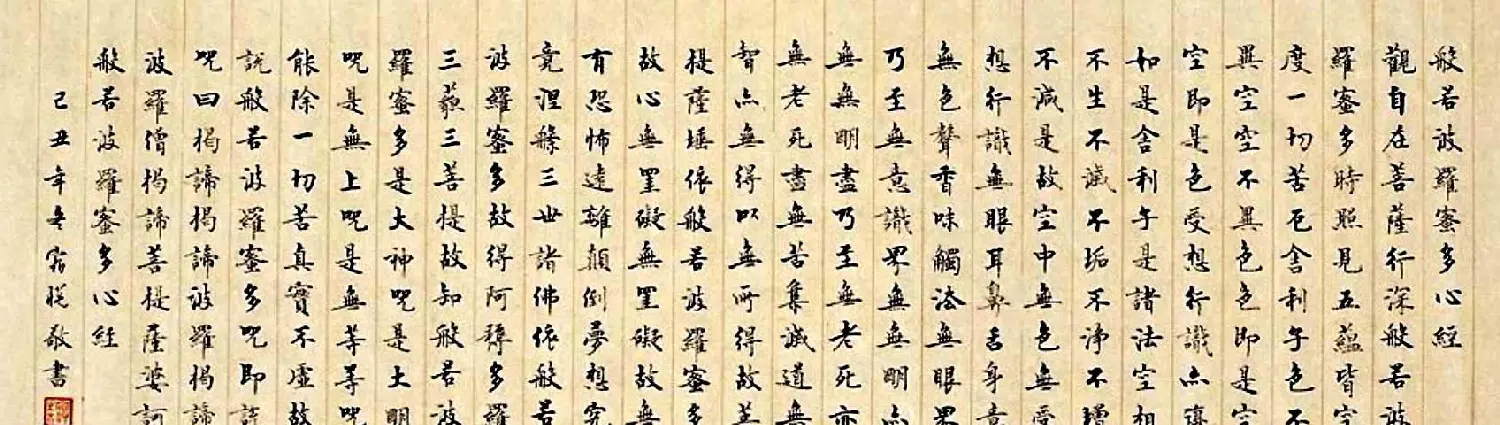 般若波羅蜜多心經
觀自在菩薩行深般若波
羅蜜多時照見五蘊皆空
度一切苦厄舍利子色不
異空空不異色色即是空
空即是色受想行識亦復
如是舍利子是諸法空相
不生不滅不垢不淨不增
不減是故空中無色無受
想行識無眼耳鼻舌身意
無色聲香味觸法無眼界
乃至無意識界無無明亦
無無明盡乃至無老死亦
無老死盡無苦集滅道無
智亦無得以無所得故菩
提薩埵依般若波羅蜜多
故心無罣礙無罣礙故無
有恐怖遠離顛倒夢想究
竟涅槃三世諸佛依般若
波羅蜜多故得阿耨多羅
三藐三菩提故知般若波
羅蜜多是大神呪是大明
呪是無上呪是無等等呪
能除一切苦真實不虛故
說般若波羅蜜多呪即說
呪曰揭諦揭諦波羅揭諦
波羅僧揭諦菩提薩婆訶
般若波羅蜜多心經
己丑年敬書